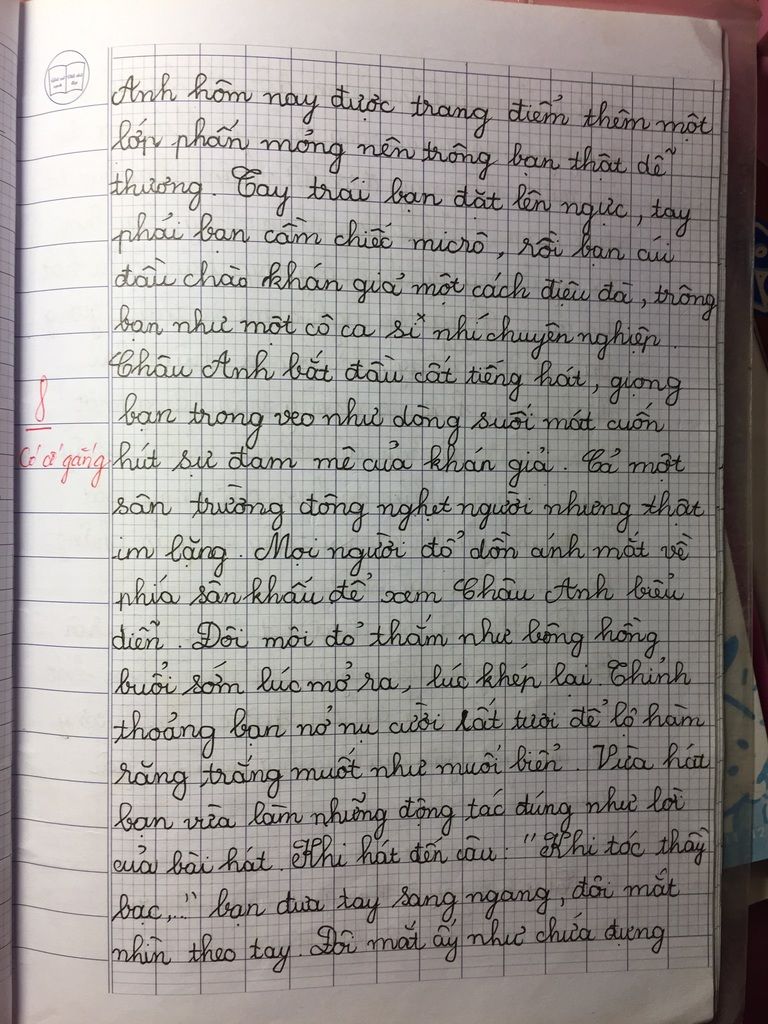 Anh hôm nay được trang điểm thêm một
lớp phấn mỏng nên trông bạn thật dễ
thương. Tay trái bạn đặt lên ngực, tay
phải bạn cầm chiếc micrô, rồi bạn cúi
đầu chào khán giả một cách điệu đà, trông
bạn như một cô ca sĩ nhí chuyên nghiệp.
Châu Anh bắt đầu cất tiếng hát, giọng
bạn trong veo như dòng suối mát cuốn
8
Có cố gắng
hút sự đam mê của khán giả. Cả một
sân trường đông nghẹt người nhưng thật
im lặng. Mọi người đổ dồn ánh mắt về
phía sân khấu để xem Châu Anh biểu
diễn. Đôi môi đỏ thắm như bông hồng
buổi sớm lúc mở ra, lúc khép lại. Thỉnh
thoảng bạn nở nụ cười rất tươi để lộ hàm
răng trắng muốt như muối biển. Vừa hát
bạn vừa làm những động tác đúng như lời
của bài hát. Khi hát đến câu: "Khi tóc thầy
bạc,..." bạn đưa tay sang ngang, đôi mắt
nhìn theo tay. Đôi mắt ấy như chứa đựng